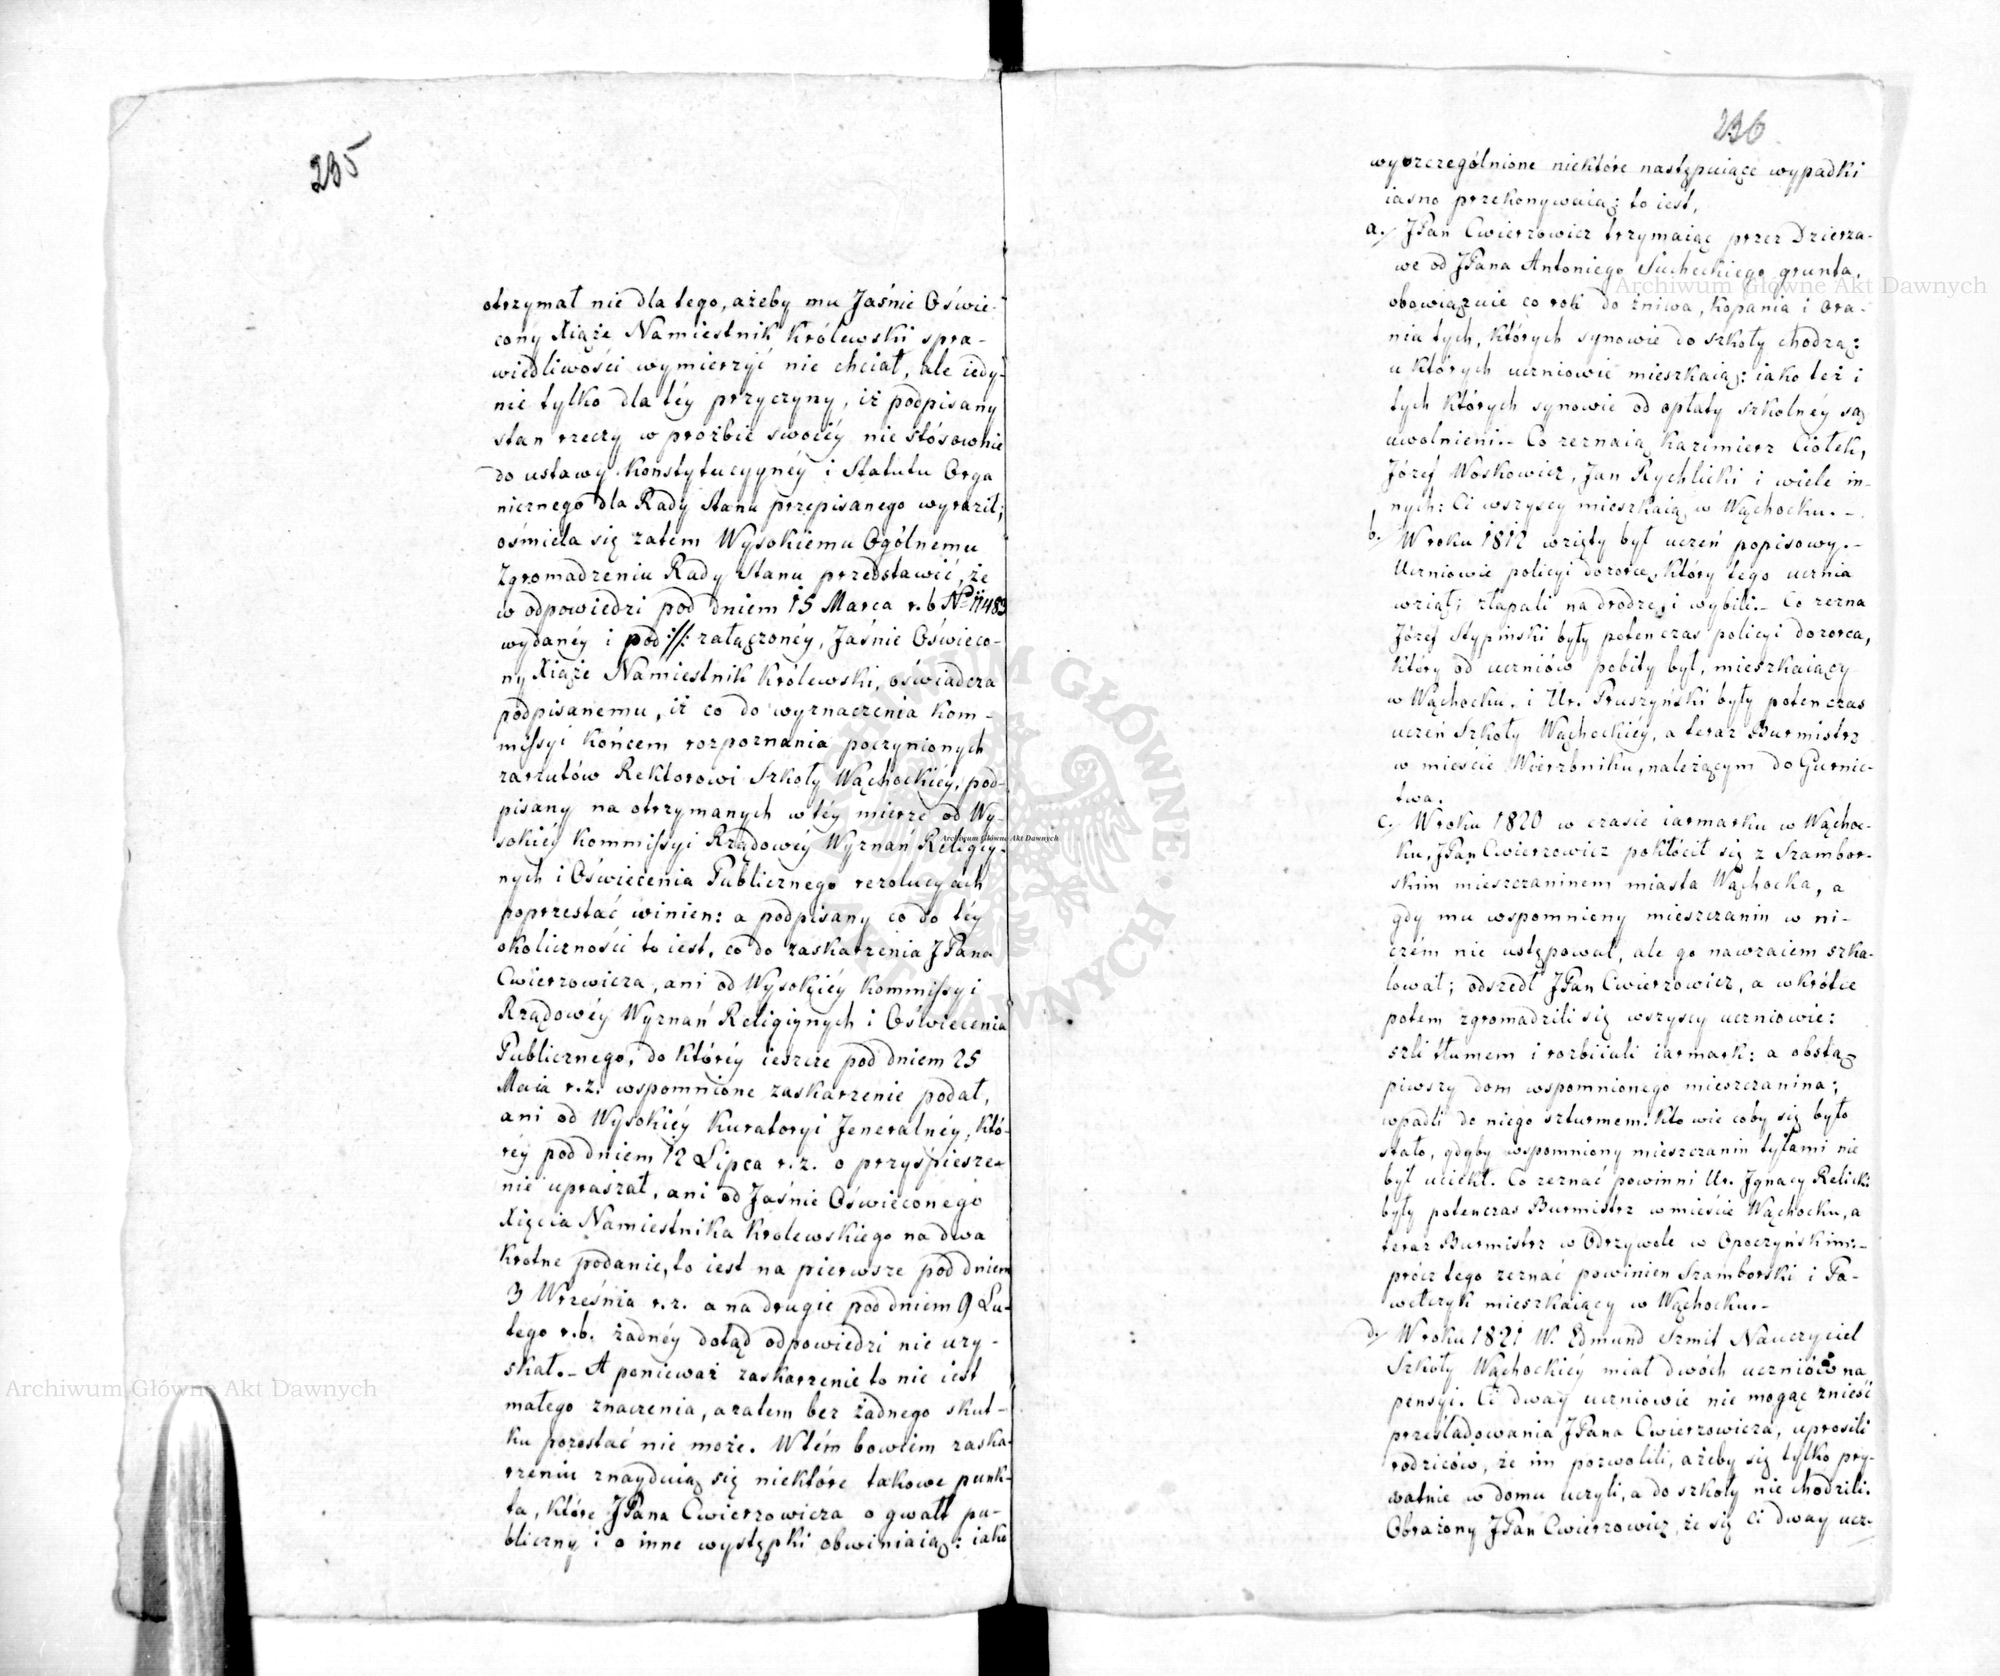 235
otrzymał nie dla tego, ażeby mu Jaśnie Oświe-
cony Xiąże Namiestnik Królewski spra-
wiedliwości wymierzyć nie chciał, ale iedy-
nie tylko dla téy przyczyny, iż podpisany
stan rzeczy w prożbie swoiéy nie stósownie
do ustawy Konstytucyynéy i Statutu Orga
nicznego dla Rady Stanu przepisanego wyraził;
ośmiela się zatem Wysokiemu Ogólnemu
Zgromadzeniu Rady Stanu przedstawić, że
w odpowiedzi pod dniem 15 Marca r. b. No 11483
wydanéy i pod ://: załączonéy, Jaśnie Oświeco-
ny Xiąże Namiestnik Królewski, oświadcza
podpisanemu, iż co do wyznaczenia Kom-
missyi końcem rozpoznania poczynionych
zarzutów Rektorowi Szkoły Wąchockiéy, pod-
pisany na otrzymanych w téy mierze od Wy-
sokiéy Kommissyi Rządowéy Wyznań Religiy-
nych i Oświecenia Publicznego rezolucyach
poprzestać winien: a podpisany co do téy
okoliczności to iest, co do zaskarżenia JPana
Cwierzowicza, ani od Wysokiéy Kommissyi
Rządowéy Wyznań Religiynych i Oświecenia
Publicznego, do któréy ieszcze pod dniem 25
Maia r. z. wspomnione zaskarżenie podał,
ani od Wysokiéy Kuratoryi Jeneralnéy, któ-
réy pod dniem 12 Lipca r. z. o przyśpiesze-
nie upraszał, ani od Jaśnie Oświeconego
Xięcia Namiestnika Krolewskiego na dwa
krotne podanie, to iest na pierwsze pod dniem
3 Września r. z. a na drugie pod dniem 9 Lu-
tego r. b. żadnéy dotąd odpowiedzi nie uzy-
skał. - A ponieważ zaskarżenie to nie iest
małego znaczenia, a zatem bez żadnego skut-
ku pozostać nie może. W tém bowiem zaska-
rżeniu znayduią się niektóre takowe punk-
ta, które JPana Cwierzowicza o gwałt pu-
bliczny i o inne występki obwiniaią: iako
236
wyszczególnione niektóre następuiące wypadki
iasno przekonywaią: to iest,
a./ JPan Cwierzowicz trzymaiąc przez Dzierża-
we od JPana Antoniego Sucheckiego grunta,
obowiązuie co rok do żniwa, kopania i ora-
nia tych, których synowie do szkoły chodzą:
u których uczniowie mieszkaią: iako też i
tych których synowie od opłaty szkolnéy są
uwolnieni. - Co zeznaią Kazimierz Ciołek,
Józef Woskowicz, Jan Rychlicki i wiele in-
nych: Ci wszyscy mieszkaią w Wąchocku. -
b./ W roku 1812 wzięty był uczeń popisowy. -
Uczniowie policyi dozorcę, który tego ucznia
wziął; złapali na drodze, i wybili. - Co zezna
Józef Stypinski były potenczas policyi dozorca,
który od uczniów pobity był, mieszkaiący
w Wąchocku. i Ur. Pruszyński były potenczas
uczeń Szkoły Wąchockiéy, a teraz Burmistrz
w mieście Wierzbniku, należącym do Gurnic-
twa.
c./ W roku 1820 w czasie iarmarku w Wąchoc-
ku, JPan Cwierzowicz pokłócił się z Szambor-
skim mieszczaninem miasta Wąchocka, a
gdy mu wspomnieny mieszczanin w ni-
czém nie ustępował, ale go nawzaiem szka-
lował; odszedł JPan Cwierzowicz, a wkrótce
potem zgromadzili się wszyscy uczniowie:
szli tłumem i rozbiiali iarmark: a obstą-
piwszy dom wspomnionego mieszczanina;
wpadli do niego szturmem. Kto wie coby się było
stało, gdyby wspomniony mieszczanin tyłami nie
był uciekł. Co zeznać powinni Ur. Jgnacy Relicki
były potenczas Burmistrz w mieście Wąchocku, a
teraz Burmistrz w Odrzywole w Opoczyńskim: -
prócz tego zeznać powinien Szamborski i Pa-
wełczyk mieszkaiący w Wąchocku. -
d./ W roku 1821 W. Edmund Szmit Nauczyciel
Szkoły Wąchockiey miał dwóch uczniów na
pensyi. Ci dway uczniowie nie mogąc znieść
prześladowania JPana Cwierzowicza, uprosili
rodziców, że im pozwolili, ażeby się tylko pry-
watnie w domu uczyli, a do szkoły nie chodzili.
Obrażony JPan Cwierzowicz, że się Ci dway ucz-
Archiwum Główne Akt Dawnych
Archiwum Główne Akt Dawnych
Archiwum Główne Akt Dawnych
ARCHIWUM GŁÓWNE AKT DAWNYCH